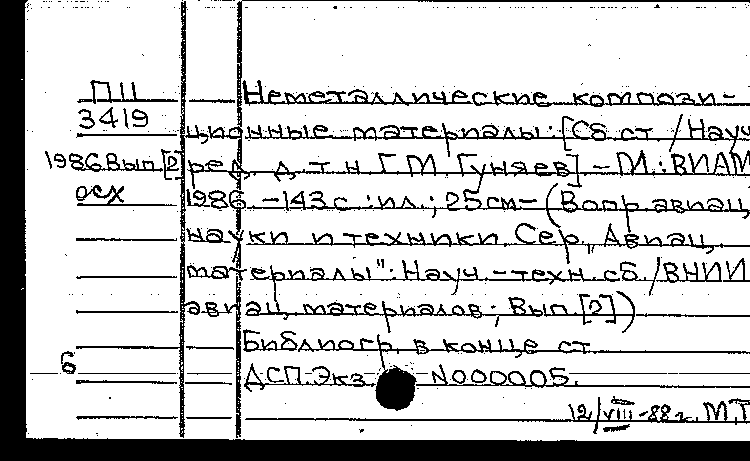 П11 Неметаллические компози-
3419 ционные материалы: [Сб. ст. / Науч
1986 Вып [2] ред. д. т. н. Г.М. Гуняев] – М.: ВИАМ
осх 1986. – 143 с. : ил. ; 25 см – (Вопр. авиац.
науки и техники. Сер. „Авиац.
материалы": Науч.-техн. сб. / ВНИИ
авиац. материалов; Вып. [2])
Библиогр. в конце ст.
6 ДСП. Экз. N000005.
12/VIII-88 г. М,Т